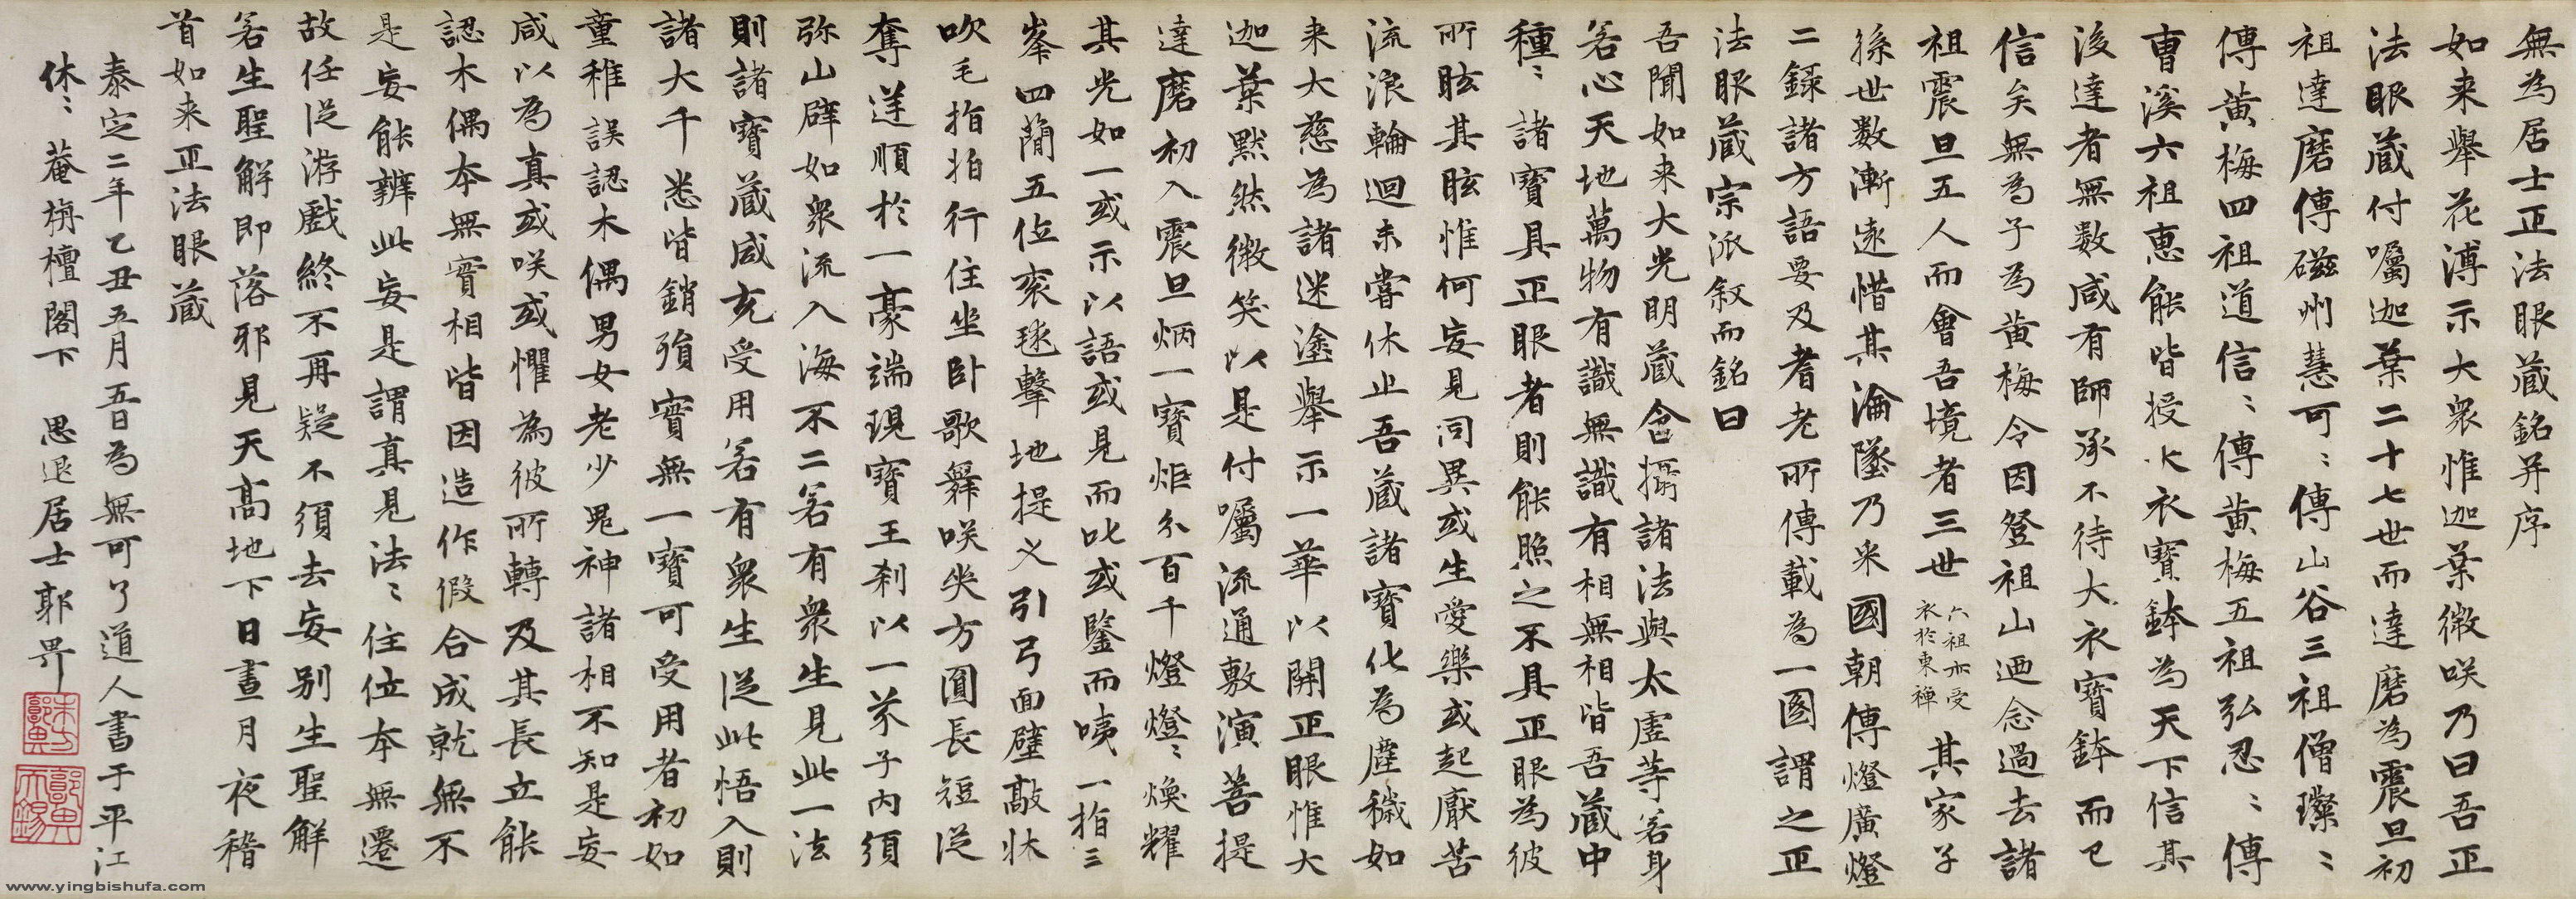 無為居士正法眼藏銘并序
如来舉花溥示大衆惟迦葉微咲乃曰吾正
法眼藏付囑迦葉二十七世而達磨為震旦初
祖達磨傳磁州慧可〻傳山谷三祖僧璨〻
傳黄梅四祖道信〻傳黄梅五祖弘忍〻傳
曹溪六祖恵能皆授以衣寳鉢為天下信其
後達者無数咸有師承不待大衣寳鉢而已
信矣無為子為黄梅令因登祖山迺念過去諸
祖震旦五人而會吾境者三世六祖亦受衣於東禅其家子
孫世数漸遠惜其淪墜乃采國朝傳燈廣燈
二録諸方語要及耆老所傳載為一圖謂之正
法眼藏宗派叙而銘曰
吾聞如来大光明藏含攝諸法與太虚等若身
若心天地萬物有識無識有相無相皆吾藏中
種〻諸寳具正眼者則能照之不具正眼為彼
所眩其眩惟何妄見同異或生愛樂或起厭苦
流浪輪迴未嘗休止吾藏諸寳化為塵穢如
来大慈為諸迷塗舉示一華以開正眼惟大
迦葉默然微笑以是付囑流通敷演菩提
達磨初入震旦炳一寳炬分百千燈燈〻煥耀
其光如一或示以語或見而叱或鑒而咦一指三
峯四蕳五位衮毬擊地提义引弓面壁敲牀
吹毛指拍行住坐卧歌舞咲哭方圓長短從
奪逆順於一豪端現寳王刹以一芥子内須
弥山辟如衆流入海不二若有衆生見此一法
則諸寳藏咸充受用若有衆生從此悟入則
諸大千悉皆銷殞實無一寳可受用者初如
童稚誤認木偶男女老少鬼神諸相不知是妄
咸以為真或咲或懼為彼所轉及其長立能
認木偶本無實相皆因造作假合成就無不
是妄能辨此妄是謂真見法〻住位本無遷
故任從游戲終不再疑不須去妄别生聖解
若生聖解即落邪見天高地下日晝月夜稽
首如来正法眼藏
泰定二年乙丑五月五日為無可了道人書于平江
休〻菴栴檀閣下 思退居士郭畀
www.yingbishufa.com